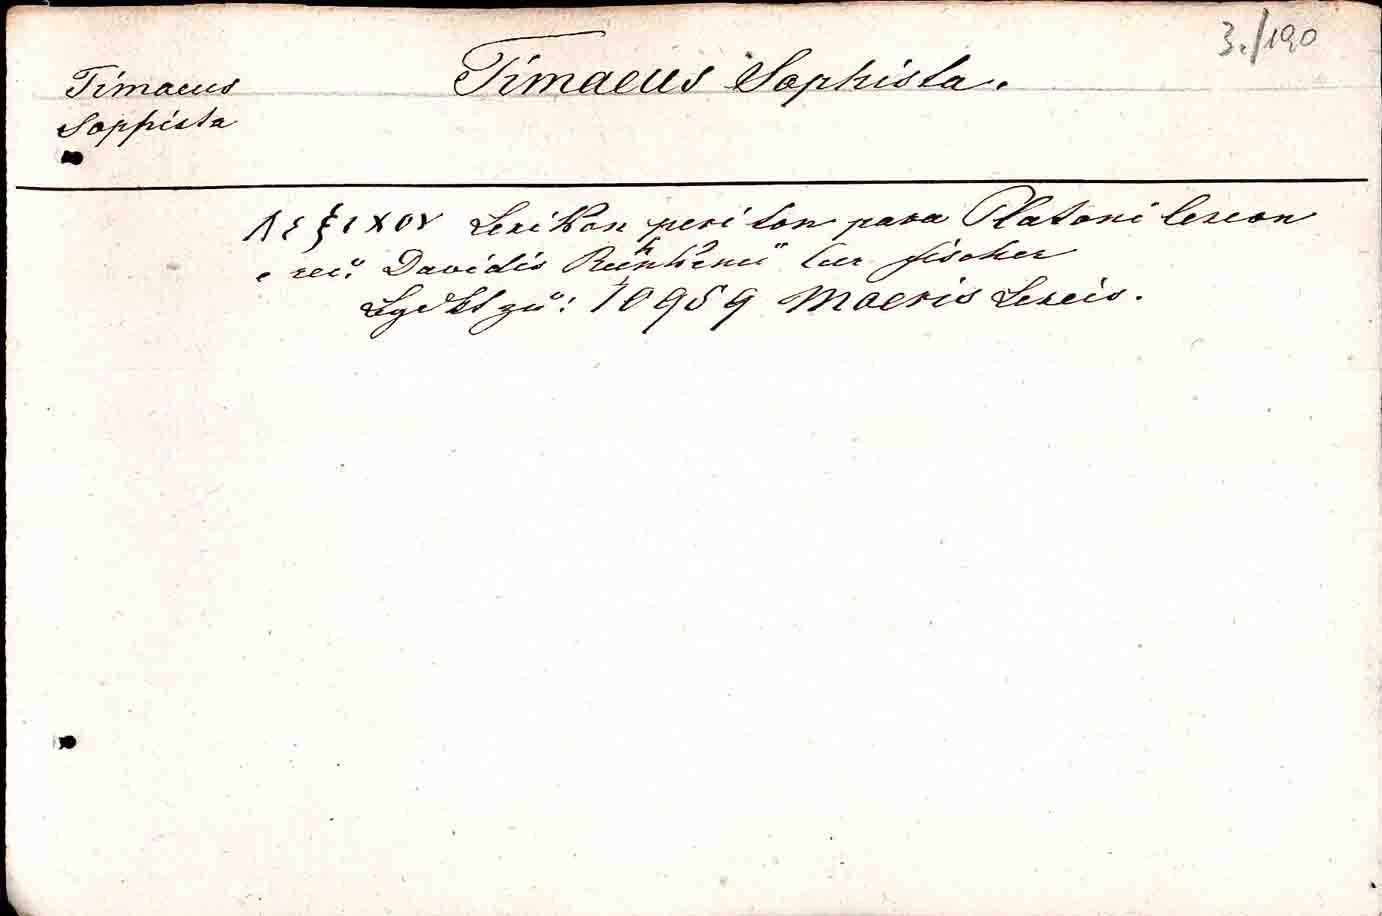 3./190
Timaeus Sophista.
Timaeus
Sophista
Λεξικον Lexikon peri ton para Platoni lexeon
e rec. Davidis Ruhnkenii cur fischer
10959 Moeris Lexeis.